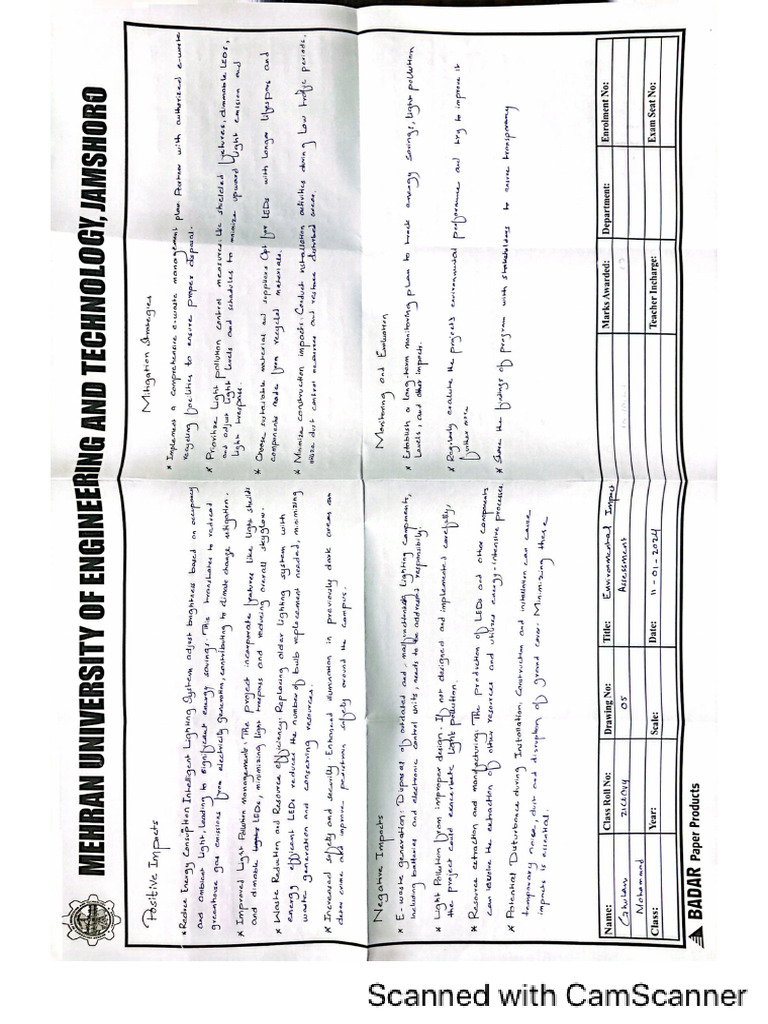 MEHRAN UNIVERSITY OF ENGINEERING AND TECHNOLOGY, JAMSHORO
Positive Impacts
* Reduce Energy Consuption Intelligent Lighting System adjust brightness based on occupancy
and ambient light, leading to significant energy savings. This translates to reduced
greenhouse gas emissions from electricity generation, contributing to climate change mitigation.
* Improved Light Pollution management: The project incorporate features like light shields
and dimable LEDs, minimizing light trespass and reducing overall skyglow.
* Waste Reduction and Resource efficiency: Replacing older lighting system with
energy efficent LEDs reduces the number of bulb replacement needed, minimizing
waste generation and conserving resources.
* Increased safety and security: Enhanced illumination in previously dark areas can
deter crime and improve pedestrians safety around the campus.
Negative Impacts
* E-waste generation: Disposal of outdated and malfunctioning lighting components,
including batteries and electronic control units, needs to be addressed responsibly.
* Light Pollution from improper design: If not designed and implemented carefully,
the project could exacerbate light pollution.
* Resource extraction and manufacturing: The production of LEDs and other components
can involve the extraction of other resources and utilizes energy-intensive processes.
* Potential Disturbance during Installation: Construction and installation can cause
temporary noise, dust and disruption of ground cover. Minimizing these
impacts is essential.
Mitigation Strategies
* Implement a comprehensive e-waste management plan: Partner with authorized e-waste
recycling facilities to ensure proper disposal.
* Prioritize Light pollution control measures: Use shielded fixtures, dimmable LEDs,
and adjust light levels and schedules to minimize upward light emission and
light trespass.
* Choose sustainable material and suppliers: Opt for LEDs with longer lifespans and
components made from recycled materials.
* Minimize construction impacts: Conduct installation activities during low traffic periods,
utilize dust control measures and restore disturbed areas.
Monitoring and Evaluation
* Establish a long-term monitoring plan to track energy savings, light pollution
levels, and other impacts.
* Regularly evaluate the project's environmental performance and try to improve it
further more
* Share the findings of program with stakeholders to ensure transparency
Name:
Ghulam
Mohammad
Class:
Class Roll No:
21CL044
Year:
Drawing No:
05
Scale:
Title:
Environmental Impact
Assessment
Date:
11-01-2024
Marks Awarded:
Teacher Incharge:
Department:
Enrolment No:
Exam Seat No:
BADAR Paper Products
Scanned with CamScanner